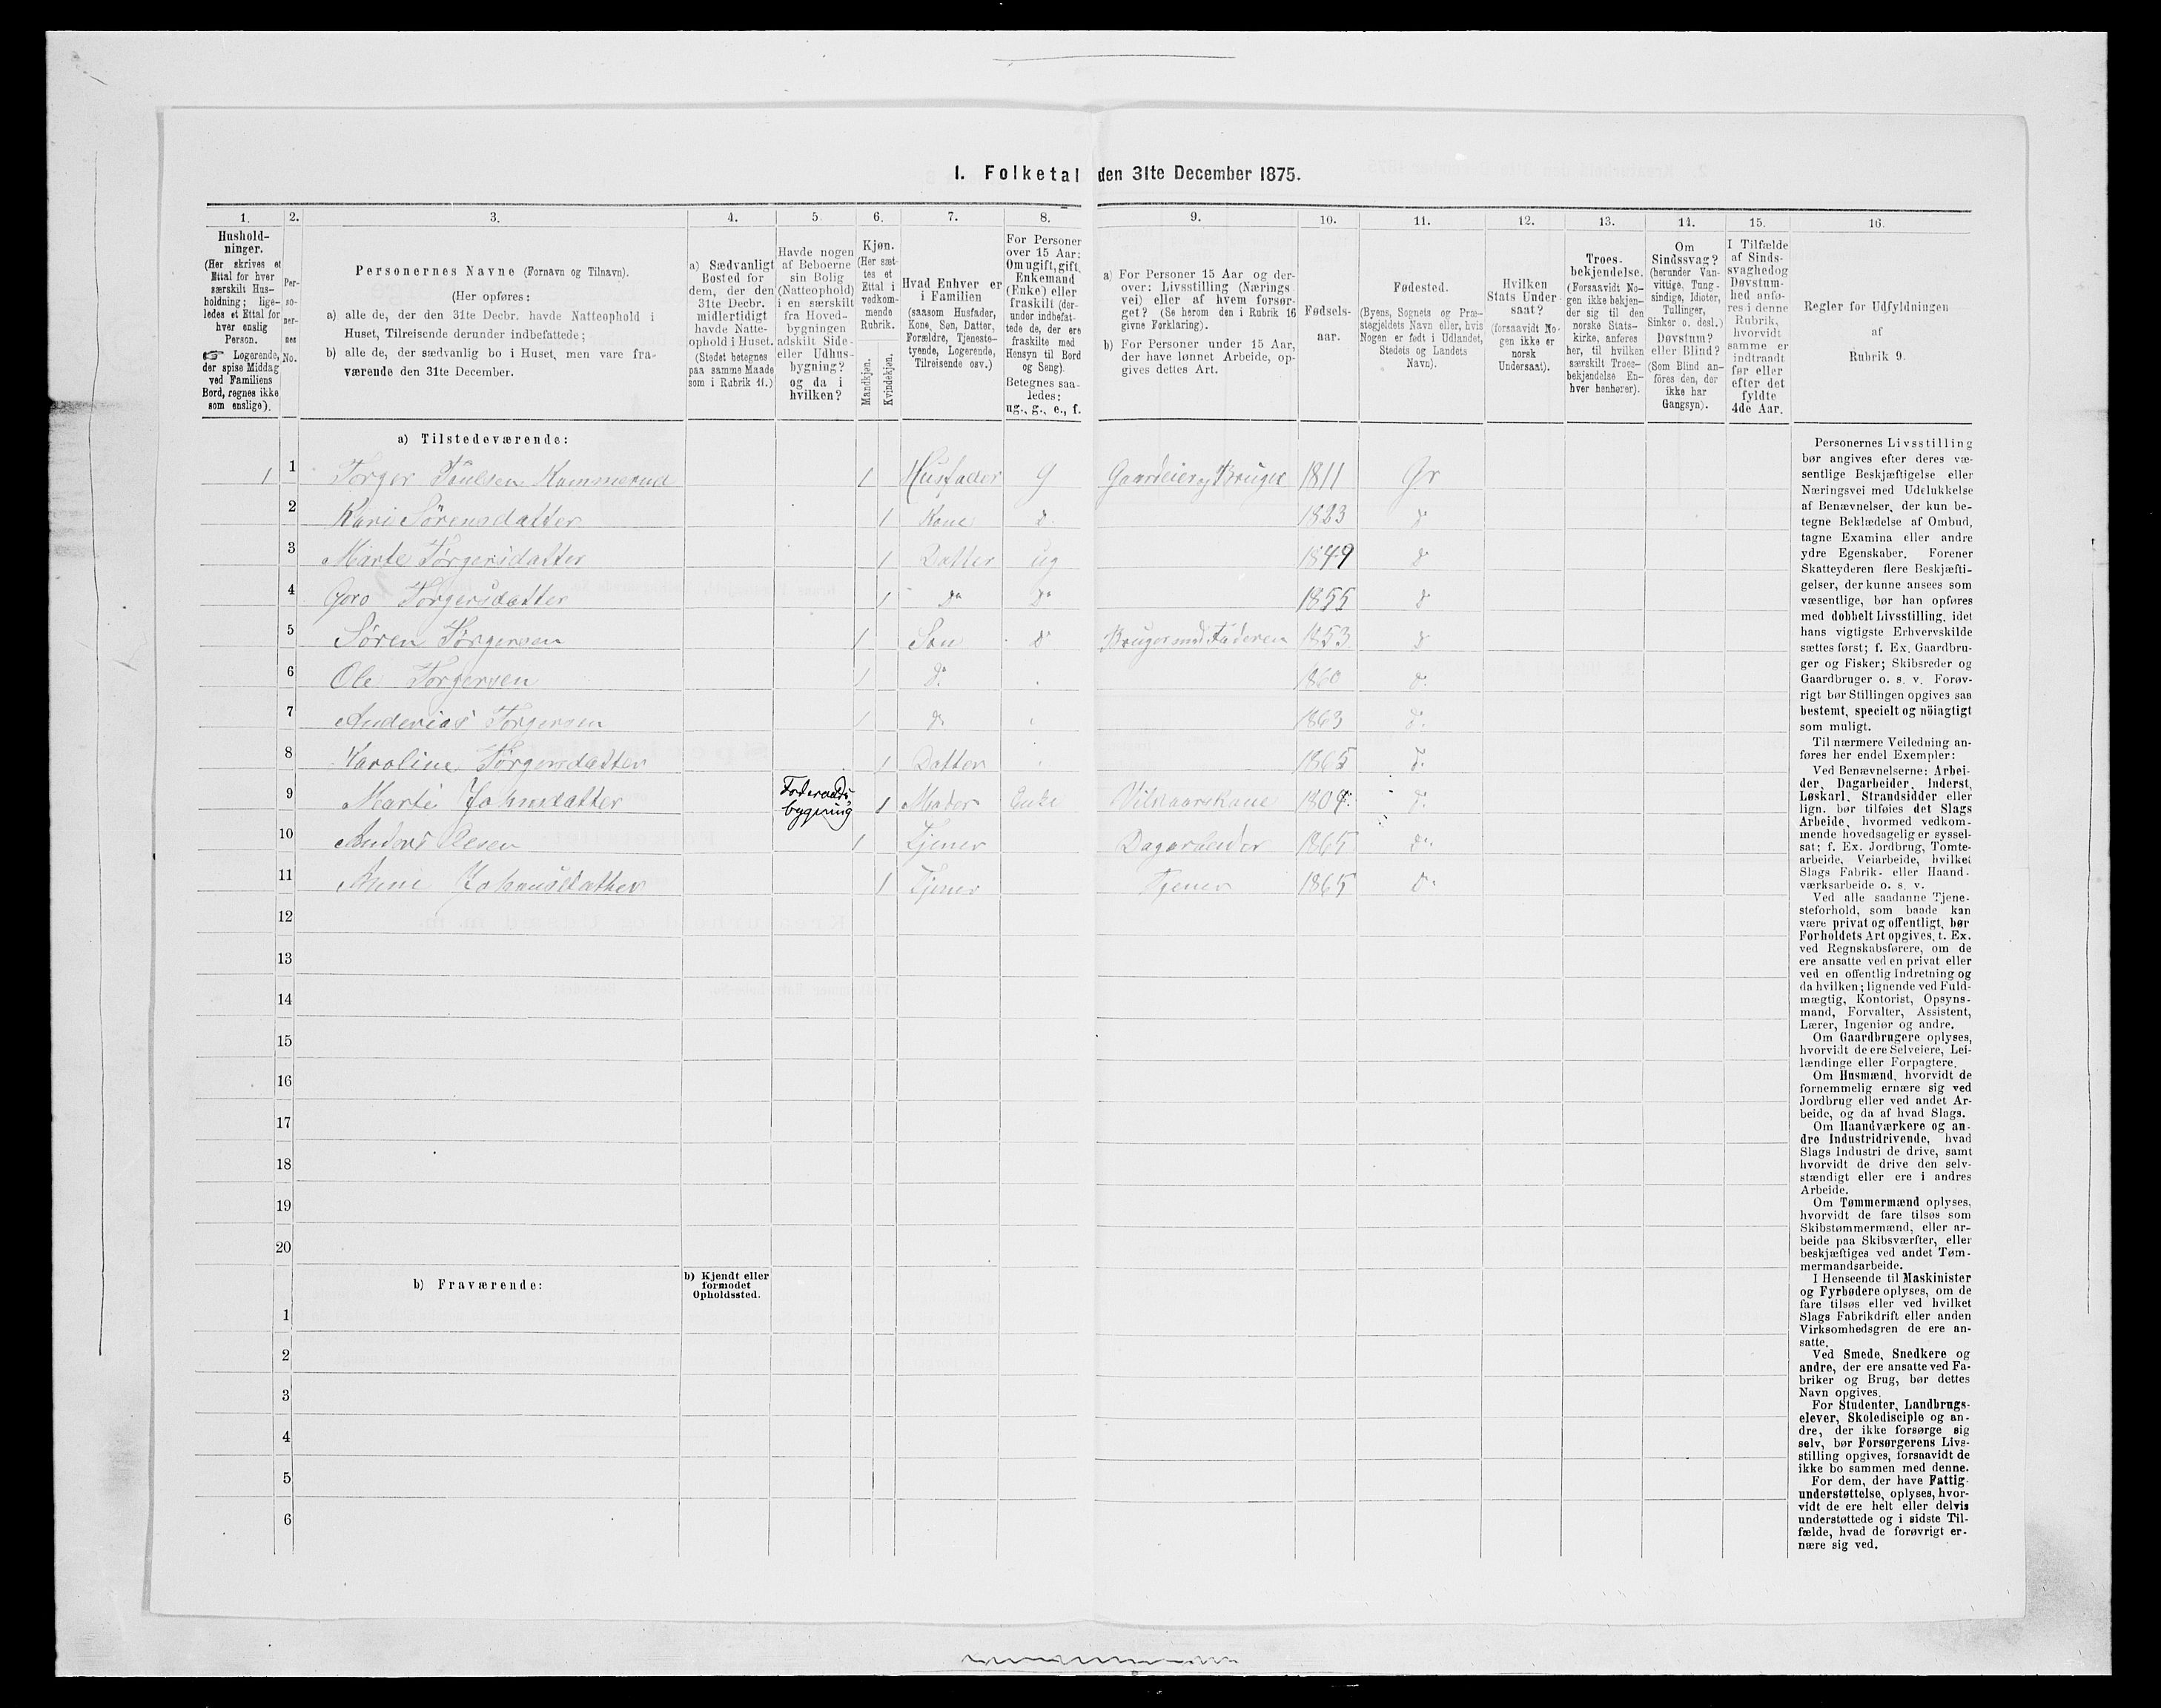 1. Folketal den 31te December 1875.
1. 2. 3. 4. 5. 6. 7. 8. 9. 10. 11. 12. 13. 14. 15. 16.
Hushold-
ninger.
(Her skrives et
Ettal for hver
særskilt Hus-
holdning; lige-
ledes et Ettal for
hver enslig
Person.
☞ Logerende,
der spise Middag
ved Familiens
Bord, regnes ikke
som enslige).
Per-
so-
ner-
nes
No.
Personernes Navne (Fornavn og Tilnavn).
(Her opføres:
a) alle de, der den 31te Decbr. havde Natteophold i
Huset, Tilreisende derunder indbefattede;
b) alle de, der sædvanlig bo i Huset, men vare fra-
værende den 31te December.
a) Sædvanligt
Bosted for
dem, der den
31te Decbr.
midlertidigt
havde Natte-
ophold i Huset.
(Stedet betegnes
paa samme Maade
som i Rubrik 11.)
Havde nogen
af Beboerne
sin Bolig
(Natteophold)
i en særskilt
fra Hoved-
bygningen
adskilt Side-
eller Udhus-
bygning?
og da i
hvilken?
Kjøn.
(Her sæt-
tes et
Ettal i
vedkom-
mende
Rubrik.
Mandkjøn.
Kvindekjøn.
Hvad Enhver er
i Familien
(saasom Husfader,
Kone, Søn, Datter,
Forældre, Tjeneste-
tyende, Logerende,
Tilreisende osv.)
For Personer
over 15 Aar:
Om ugift, gift,
Enkemand
(Enke) eller
fraskilt (der-
under indbefat-
tede de, der ere
fraskilte med
Hensyn til Bord
og Seng).
Betegnes saa-
ledes:
ug., g., e., f.
a) For Personer 15 Aar og der-
over: Livsstilling (Nærings-
vei) eller af hvem forsør-
get? (Se herom den i Rubrik 16
givne Forklaring).
b) For Personer under 15 Aar,
der have lønnet Arbeide, op-
gives dettes Art.
Fødsels-
aar.
Fødested.
(Byens, Sognets og Præ-
stegjeldets Navn eller, hvis
Nogen er født i Udlandet,
Stedets og Landets
Navn).
Hvilken
Stats Under-
saat?
(forsaavidt No-
gen ikke er
norsk
Undersaat).
Troes-
bekjendelse.
(Forsaavidt No-
gen ikke bekjen-
der sig til den
norske Stats-
kirke, anføres
her, til hvilken
særskilt Troes-
bekjendelse En-
hver henhører).
Om
Sindssvag?
(herunder Van-
vittige, Tung-
sindige, Idioter,
Tullinger,
Sinker o. desl.)
Døvstum?
eller Blind?
(Som Blind an-
føres den, der
ikke har
Gangsyn).
I Tilfælde
af Sinds-
svaghed og
Døvstum-
hed anfø-
res i denne
Rubrik,
hvorvidt
samme er
indtraadt
før eller
efter det
fyldte
4de Aar.
Regler for Udfyldningen
af
Rubrik 9.
a) Tilstedeværende:
1 1 Torger Poulsen Kammerud 1 Husfader G Gaardeier og Bruger 1811 Gr
2 Kari Sörensdatter 1 Kone d. 1823 do
3 Marte Torgersdatter 1 Datter ug 1849 do
4 Goro Torgersdatter 1 Do Do 1855 do
5 Sören Torgersen 1 Son do Bruger med Faderen 1853 do
6 Ole Torgersen 1 do 1860 do
7 Anderias Torgersen 1 do 1863 do
8 Karoline Torgersdatter 1 Datter 1865 do
9 Marte Johnsdatter Foderaads-
bygning 1 Moder Enke Vilkaarskone 1804 do
10 Anders Olesen 1 Tjener Dagarbeider 1865 do
11 Anne Johannsdatter 1 Tjener Tjener 1865 do
12
13
14
15
16
17
18
19
20
b) Fraværende:
b) Kjendt eller
formodet
Opholdssted.
1
2
3
4
5
6
Personernes Livsstilling
bør angives efter deres væ-
sentlige Beskjæftigelse eller
Næringsvei med Udelukkelse
af Benævnelser, der kun be-
tegne Beklædelse af Ombud,
tagne Examina eller andre
ydre Egenskaber. Forener
Skatteyderen flere Beskjæfti-
gelser, der kunne ansees som
væsentlige, bør han opføres
med dobbelt Livsstilling, idet
hans vigtigste Erhvervskilde
sættes først; f. Ex. Gaardbru-
ger og Fisker; Skibsreder og
Gaardbruger o. s. v. Forøv-
rigt bør Stillingen opgives saa
bestemt, specielt og nöiagtigt
som muligt.
Til nærmere Veiledning an-
føres her endel Exempler:
Ved Benævnelserne: Arbei-
der, Dagarbeider, Inderst,
Løskarl, Strandsidder eller
lign. bør tilføies det Slags
Arbeide, hvormed vedkom-
mende hovedsagelig er syssel-
sat; f. Ex. Jordbrug, Tomte-
arbeide, Veiarbeide, hvilket
Slags Fabrik- eller Haand-
værksarbeide o. s. v.
Ved alle saadanne Tjene-
steforhold, som baade kan
være privat og offentligt, bør
Forholdets Art opgives, t. Ex.
ved Regnskabsførere, om de
ere ansatte ved en privat eller
ved en offentlig Indretning og
da hvilken; lignende ved Fuld-
mægtig, Kontorist, Opsyns-
mand, Forvalter, Assistent,
Lærer, Ingeniør og andre.
Om Gaardbrugere oplyses,
hvorvidt de ere Selveiere, Lei-
lændinge eller Forpagtere.
Om Husmænd, hvorvidt de
fornemmelig ernære sig ved
Jordbrug eller ved andet Ar-
beide, og da af hvad Slags.
Om Haandværkere og an-
dre Industridrivende, hvad
Slags Industri de drive, samt
hvorvidt de drive den selv-
stændigt eller ere i andres
Arbeide.
Om Tømmermænd oplyses,
hvorvidt de fare tilsøs som
Skibstømmermænd, eller ar-
beide paa Skibsværfter, eller
beskjæftiges ved andet Tøm-
mermandsarbeide.
I Henseende til Maskinister
og Fyrbødere oplyses, om de
fare tilsøs eller ved hvilket
Slags Fabrikdrift eller anden
Virksomhedsgren de ere an-
satte.
Ved Smede, Snedkere og
andre, der ere ansatte ved Fa-
briker og Brug, bør dettes
Navn opgives.
For Studenter, Landbrugs-
elever, Skoledisciple og an-
dre, der ikke forsørge sig
selv, bør Forsørgerens Livs-
stilling opgives, forsaavidt de
ikke bo sammen med denne.
For dem, der have Fattig-
understøttelse, oplyses, hvor-
vidt de ere helt eller delvis
understøttede og i sidste Til-
fælde, hvad de forøvrigt er-
nære sig ved.